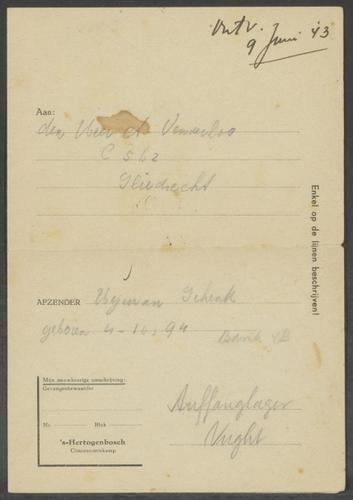 Ontv.
9 Juni '43
Aan:
den Heer A Vermerloo
C 562
Sliedrecht
Enkel op de lijnen beschrijven!
AFZENDER Schenk
geboren 4-10-94
Barak 4B
Mijn nauwkeurige omschrijving:
Gevangenbewaarder
Nr. Blok
's-Hertogenbosch
Concentratiekamp
Auffanglager
Vught